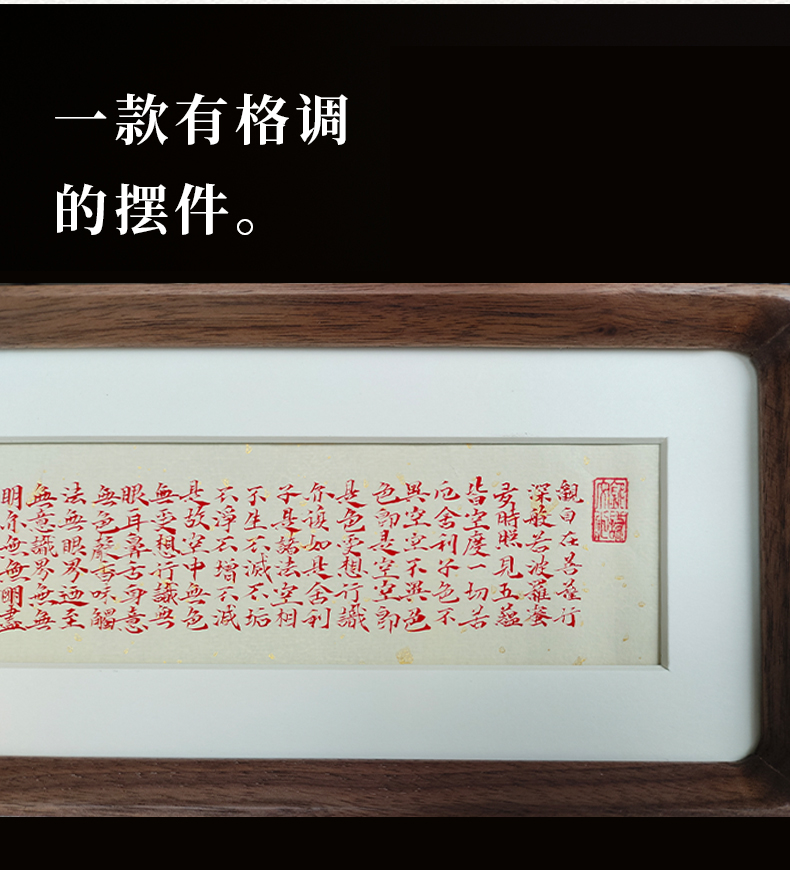 一款有格调
的摆件。
觀自在菩薩行
深般若波羅蜜
多時照見五蘊
皆空度一切苦
厄舍利子色不
異空空不異色
色即是空空即
是色受想行識
亦復如是舍利
子是諸法空相
不生不滅不垢
不淨不增不減
是故空中無色
無受想行識無
眼耳鼻舌身意
無色聲香味觸
法無眼界迺至
無意識界無無
明亦無無明盡